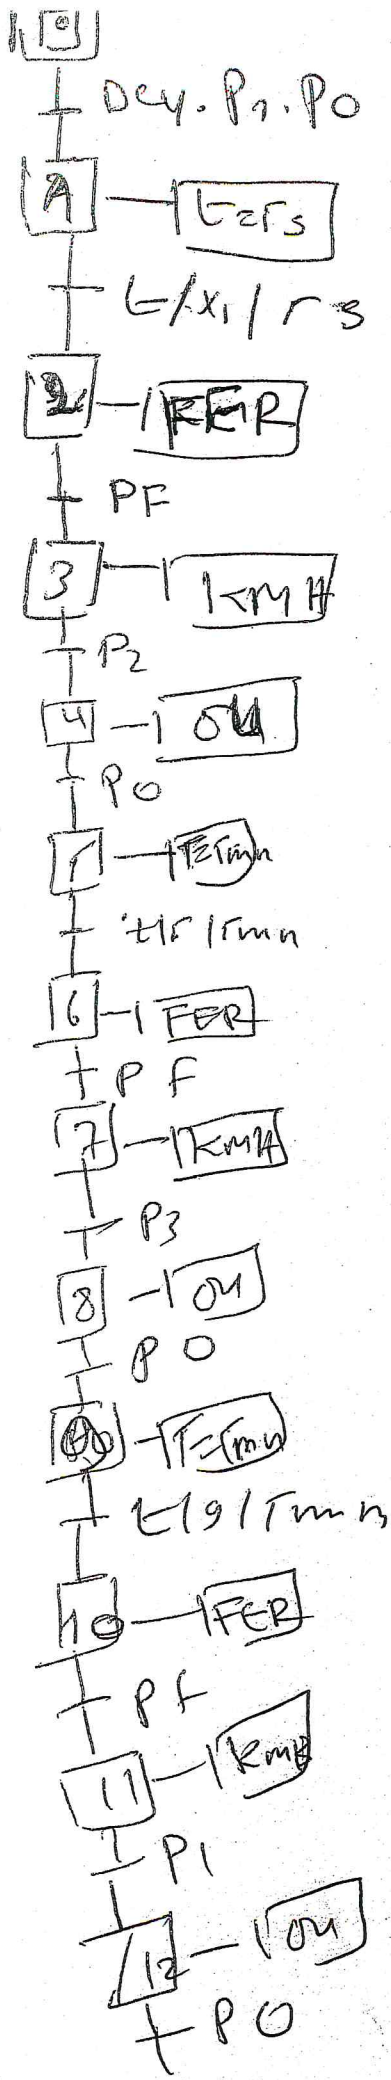 0
Dcy. P1. PO
1 t=5s
t/X1/5s
2 FER
PF
3 KMA
P2
4 OU
PO
5 T=5mn
t/5/5mn
6 FER
PF
7 KMA
P3
8 OU
PO
T=5mn
t/9/5mn
10 FER
Pf
11
P1
12 OU
PO